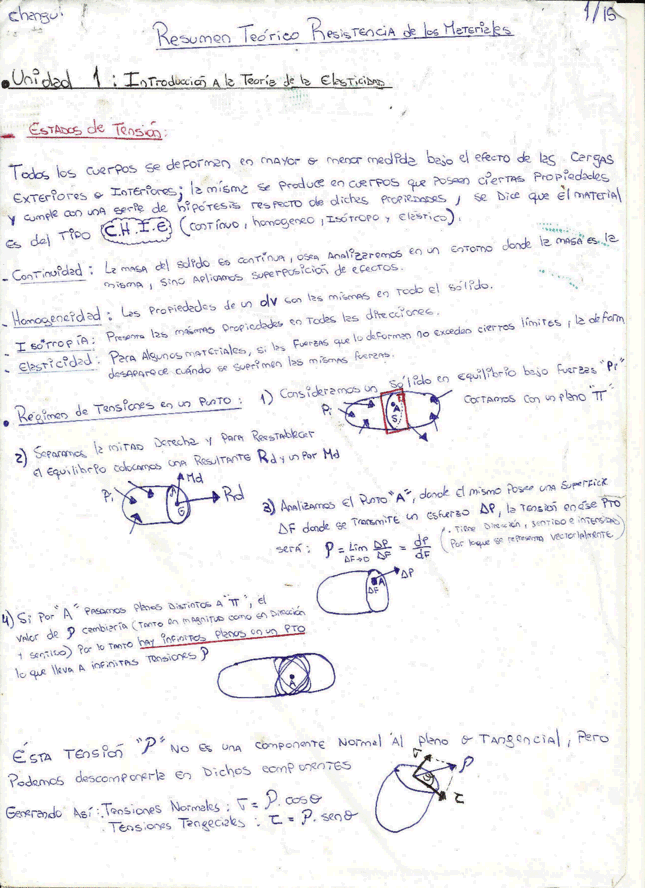 Changui
1/15
Resumen Teórico Resistencia de los Materiales
Unidad 1: Introducción a la Teoría de la Elasticidad
- Estados de Tensión:
Todos los cuerpos se deforman en mayor o menor medida bajo el efecto de las cargas
exteriores o interiores; la misma se produce en cuerpos que posean ciertas propiedades
y cumple con una serie de hipótesis respecto de dichas propiedades, se dice que el material
es del tipo C.H.I.E (continuo, homogeneo, isótropo y elástico).
- Continuidad: La masa del sólido es continua, osea analizaremos en un entorno donde la masa es la
misma, sino aplicamos superposición de efectos.
- Homogeneidad: Las propiedades de un dv son las mismas en todo el sólido.
- Isotropía: Presenta las mismas propiedades en todas las direcciones.
- Elasticidad: Para algunos materiales, si las fuerzas que lo deforman no exceden ciertos límites, la deform
desaparece cuándo se suprimen las mismas fuerzas.
• Régimen de Tensiones en un punto: 1) Consideramos un sólido en equilibrio bajo fuerzas "Pi"
Cortamos con un plano "π"
Pi
A
S
2) Separamos la mitad derecha y para reestablecer
el equilibrio colocamos una resultante Rd y un par Md
Md
Pi
Rd
G
3) Analizamos el punto "A", donde el mismo posee una superficie
ΔF donde se transmite un esfuerzo ΔP, la tensión en ése pto
será: P = Lim ΔP/ΔF = dP/dF
ΔF→0
(Tiene dirección, sentido e intensidad
Por lo que se representa vectorialmente)
ΔP
A
ΔF
4) Si por "A" pasamos planos distintos a "π", el
valor de P cambiaría (tanto en magnitud como en dirección
y sentido) Por lo tanto hay infinitos planos en un pto
lo que lleva a infinitas tensiones P
A
Ésta tensión "P" no es una componente normal al plano o tangencial, pero
podemos descomponerla en dichos componentes
σ
P
θ
τ
Generando así: Tensiones Normales: σ = P. cosθ
Tensiones Tangeciales: τ = P. senθ